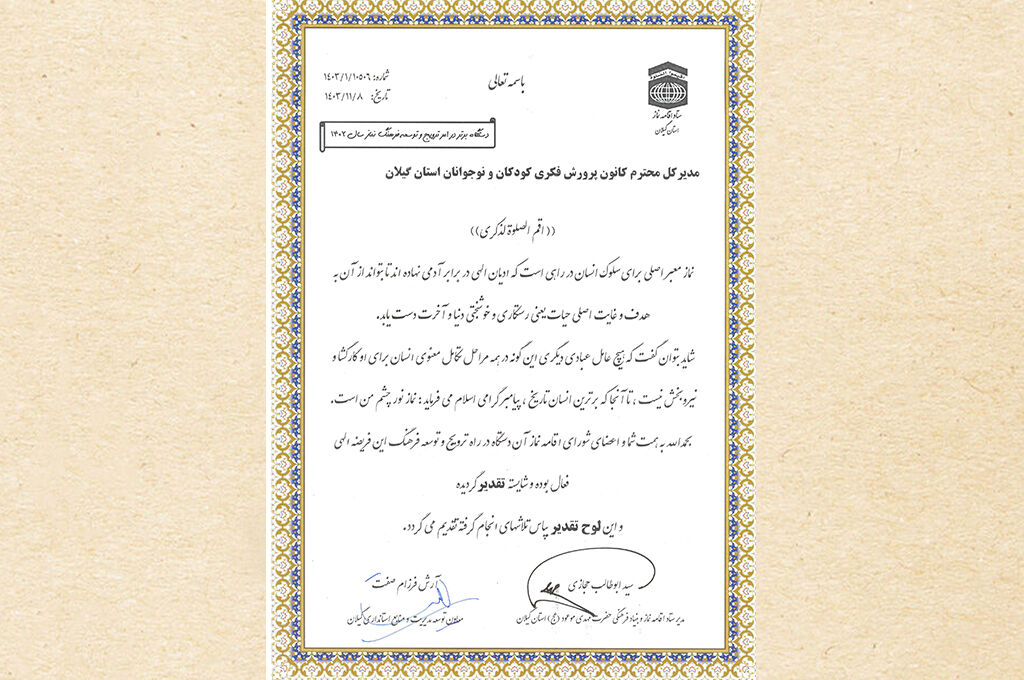 باسمه تعالی
شماره: ۱۴۰۳/۱/۱۰۵۰۶
تاریخ: ۱۴۰۳/۱۱/۸
ستاد اقامه نماز
استان گیلان
دستگاه برتر در امر ترویج و توسعه فرهنگ نماز سال ۱۴۰۲
مدیرکل محترم کانون پرورش فکری کودکان و نوجوانان استان گیلان
((اقم الصلوة لذکری))
نماز معبر اصلی برای سلوک انسان در راهی است که ادیان الهی در برابر آدمی نهاده اند تا بتواند از آن به
هدف و غایت اصلی حیات یعنی رستگاری و خوشبختی دنیا و آخرت دست یابد.
شاید بتوان گفت که هیچ عامل عبادی دیگری این گونه در همه مراحل تکامل معنوی انسان برای او کارگشا و
نیروبخش نیست، تا آنجا که برترین انسان تاریخ، پیامبر گرامی اسلام می فرماید: نماز نور چشم من است.
بحمدالله به همت شما و اعضای شورای اقامه نماز آن دستگاه در راه ترویج و توسعه فرهنگ این فریضه الهی
فعال بوده و شایسته تقدیر گردیده
و این لوح تقدیر بپاس تلاشهای انجام گرفته تقدیم می گردد.
سید ابوطالب حجازی
مدیر ستاد اقامه نماز و بنیاد فرهنگی حضرت مهدی موعود (عج) استان گیلان
آرش فرزام صفت
معاون توسعه مدیریت و منابع استانداری گیلان